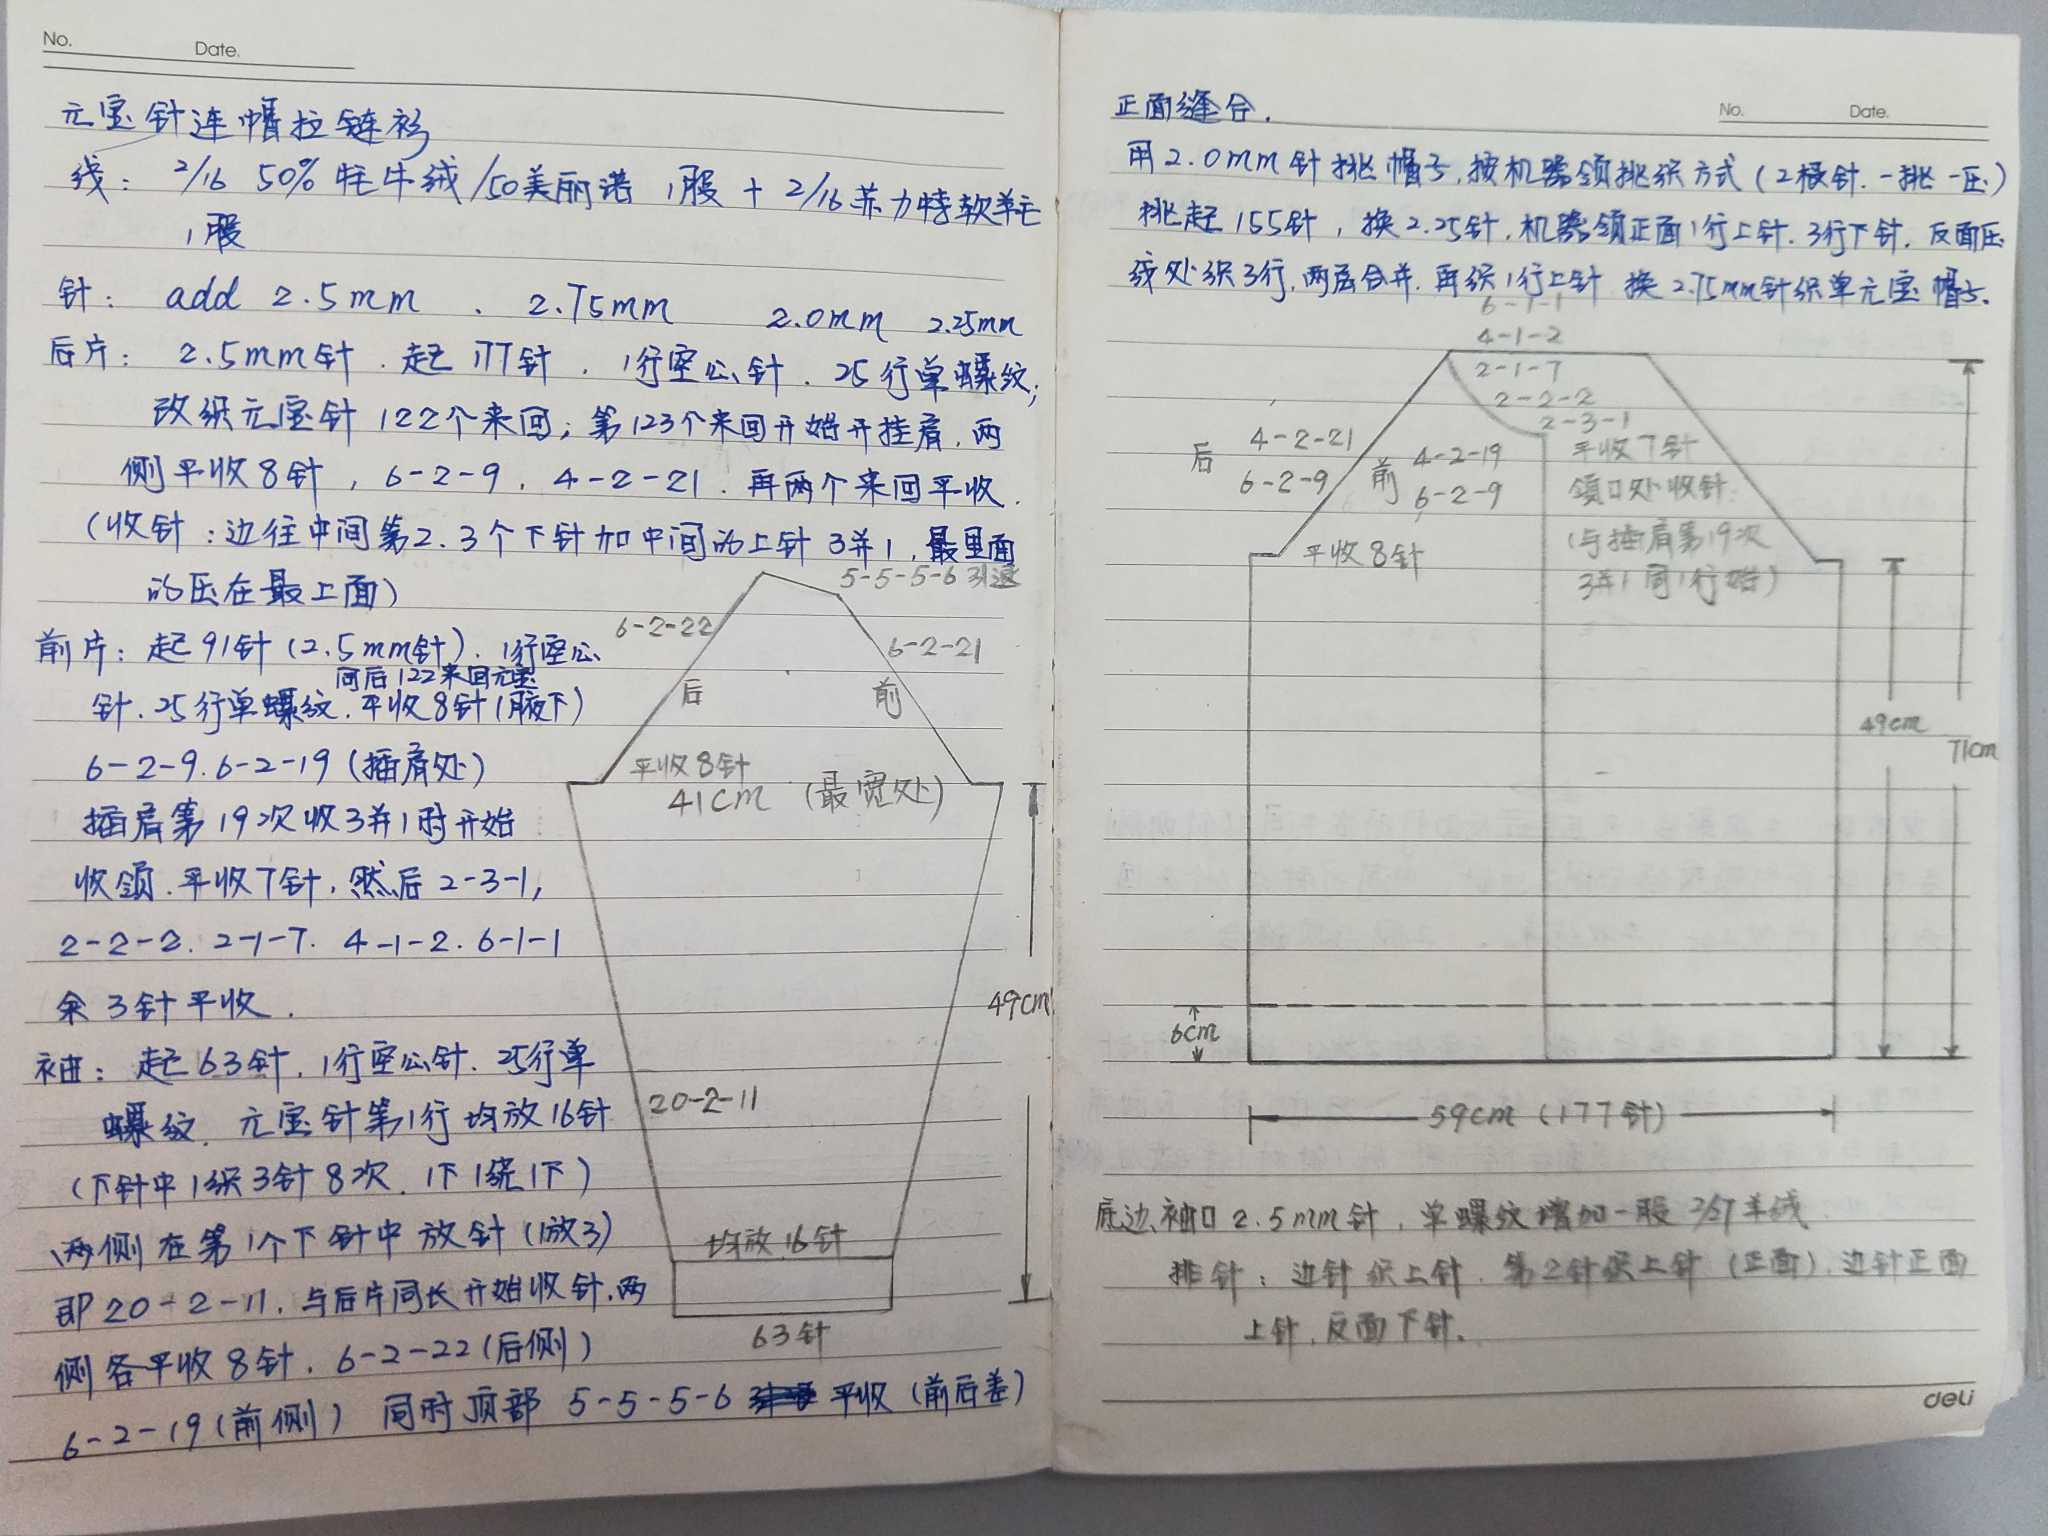 No. Date.
元宝针连帽拉链衫
线: 2/16 50% 牦牛绒/50美丽诺 1股 + 2/16 苏力特软羊毛
1股
针: add 2.5mm 、 2.75mm 2.0mm 2.25mm
后片: 2.5mm针. 起177针. 1行空心针. 25行单螺纹;
改织元宝针122个来回; 第123个来回开始开挂肩. 两
侧平收8针, 6-2-9. 4-2-21. 再两个来回平收.
(收针:边往中间第2.3个下针加中间的上针3并1, 最里面
的压在最上面)
前片: 起91针(2.5mm针). 1行空心
同后122来回元宝
针. 25行单螺纹. 平收8针(腋下)
6-2-9. 6-2-19 (插肩处)
插肩第19次收3并1时开始
收领. 平收7针, 然后2-3-1,
2-2-2. 2-1-7. 4-1-2. 6-1-1
余3针平收.
袖: 起63针, 1行空心针. 25行单
螺纹. 元宝针第1行均放16针
(下针中1织3针8次. 1下1绕1下)
两侧在第1个下针中放针(1放3)
即20-2-11. 与后片同长开始收针. 两
侧各平收8针. 6-2-22(后侧)
6-2-19(前侧) 同时顶部5-5-5-6 平收(前后差)
5-5-5-6 引退
6-2-22
6-2-21
后 前
平收8针
41cm (最宽处)
49cm
20-2-11
均放16针
63针
正面缝合.
No. Date.
用2.0mm针挑帽子, 按机器领挑织方式(2根针.一挑一压)
挑起155针, 换2.25针, 机器领正面1行上针. 3行下针. 反面压
线处织3行, 两层合并. 再织1行上针 换2.75mm针织单元宝帽子.
6-1-1
4-1-2
2-1-7
2-2-2
2-3-1
平收7针
领口处收针:
(与插肩第19次
3并1同1行始)
后 4-2-21
6-2-9
前 4-2-19
6-2-9
平收8针
49cm
71cm
6cm
59cm (177针)
底边、袖口2.5mm针, 单螺纹增加一股 羊绒
排针: 边针织上针. 第2针织上针(正面). 边针正面
上针, 反面下针.
deli